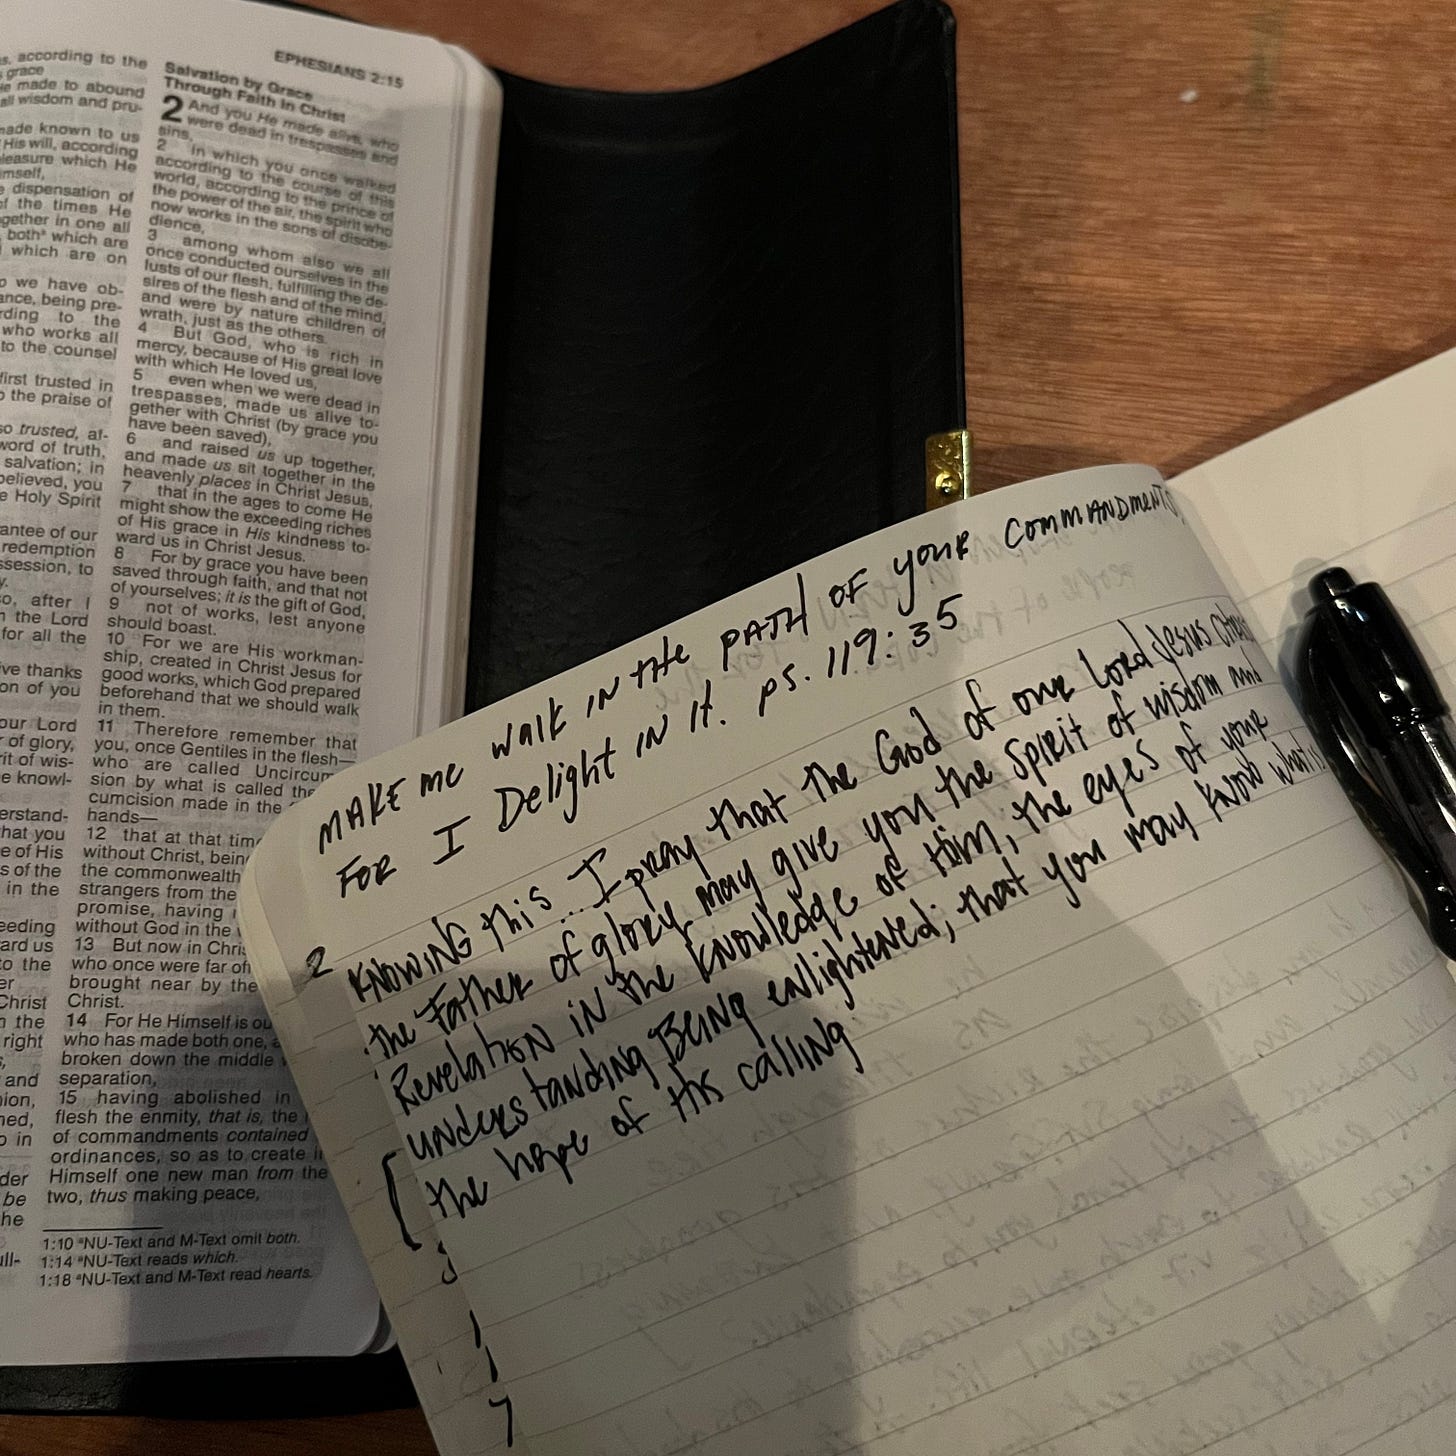 s, according to the
grace
made to abound
all wisdom and pru-
made known to us
His will, according
pleasure which He
imself,
dispensation of
of the times He
gether in one all
both which are
which are on
we have ob-
ance, being pre-
rding to the
who works all
to the counsel
first trusted in
the praise of
so trusted, af-
word of truth,
salvation; in
believed, you
Holy Spirit
antee of our
redemption
ssession, to
y.
so, after I
n the Lord
for all the
ive thanks
on of you
our Lord
r of glory,
rit of wis-
e knowl-
erstand-
hat you
e of His
s of the
in the
eeding
ard us
to the
er
Christ
n the
right
s,
and
nion,
ned,
o in
der
be
he
ull-
EPHESIANS 2:15
Salvation by Grace
Through Faith in Christ
2 And you He made alive, who
were dead in trespasses and
sins,
2 in which you once walked
according to the course of this
world, according to the prince of
the power of the air, the spirit who
now works in the sons of disobe-
dience,
3 among whom also we all
once conducted ourselves in the
lusts of our flesh, fulfilling the de-
sires of the flesh and of the mind,
and were by nature children of
wrath, just as the others.
4 But God, who is rich in
mercy, because of His great love
with which He loved us,
5 even when we were dead in
trespasses, made us alive to-
gether with Christ (by grace you
have been saved),
6 and raised us up together,
and made us sit together in the
heavenly places in Christ Jesus,
7 that in the ages to come He
might show the exceeding riches
of His grace in His kindness to-
ward us in Christ Jesus.
8 For by grace you have been
saved through faith, and that not
of yourselves; it is the gift of God,
9 not of works, lest anyone
should boast.
10 For we are His workman-
ship, created in Christ Jesus for
good works, which God prepared
beforehand that we should walk
in them.
11 Therefore remember that
you, once Gentiles in the flesh—
who are called Uncircum-
cision by what is called the
cumcision made in the
hands—
12 that at that time
without Christ, being
the commonwealth
strangers from the
promise, having
without God in the
13 But now in Chris
who once were far of
brought near by the
Christ.
14 For He Himself is ou
who has made both one, a
broken down the middle
separation,
15 having abolished in
flesh the enmity, that is, the
of commandments contained
ordinances, so as to create i
Himself one new man from the
two, thus making peace,
1:10 ᵃNU-Text and M-Text omit both.
1:14 ᵃNU-Text reads which.
1:18 ᵃNU-Text and M-Text read hearts.
MAKE me walk IN the PATH OF your COMMANDMENTS,
FOR I Delight IN It. ps. 119:35
2 KNOWING this... I pray that the God of our Lord Jesus Christ
the Father of glory may give you the Spirit of wisdom and
Revelation in the knowledge of Him, the eyes of your
understanding Being enlightened; that you may know what is
the hope of His calling